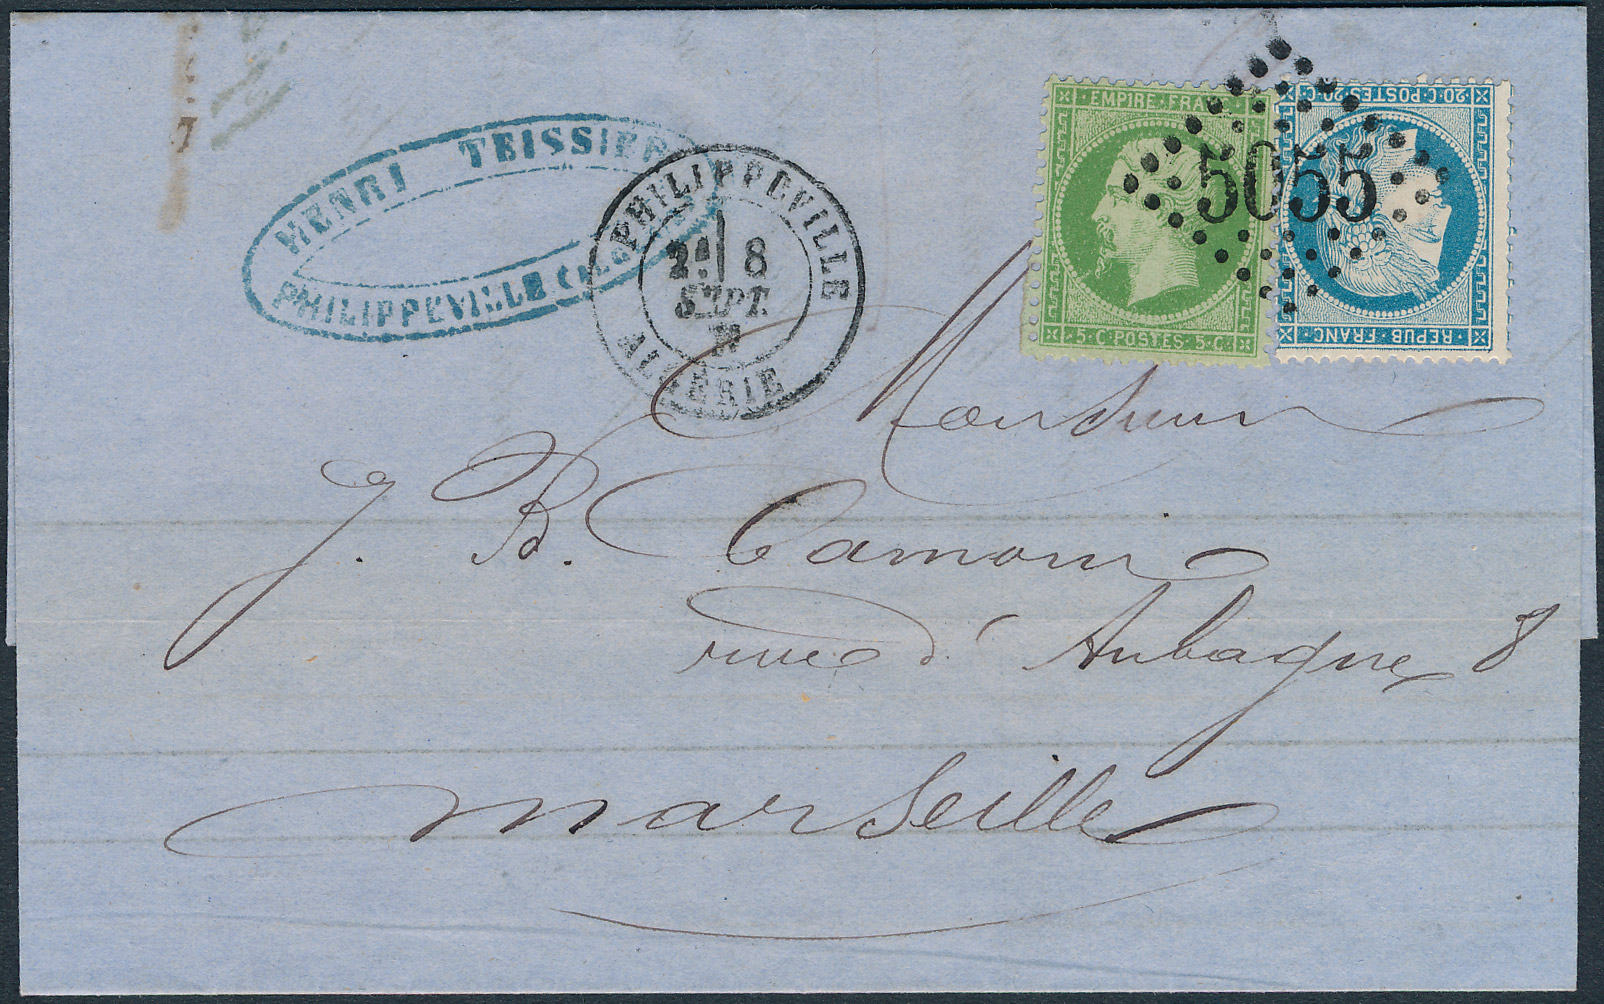 HENRI TEISSIER
PHILIPPEVILLE
PHILIPPEVILLE
8
SEPT.
ALGÉRIE
EMPIRE FRANC
5 · C POSTES · 5 · C
20 · C · POSTES · 20 · C
REPUB · FRANC
5055
Monsieur
J. B. Camoin
rue d'Aubagne 8
Marseille